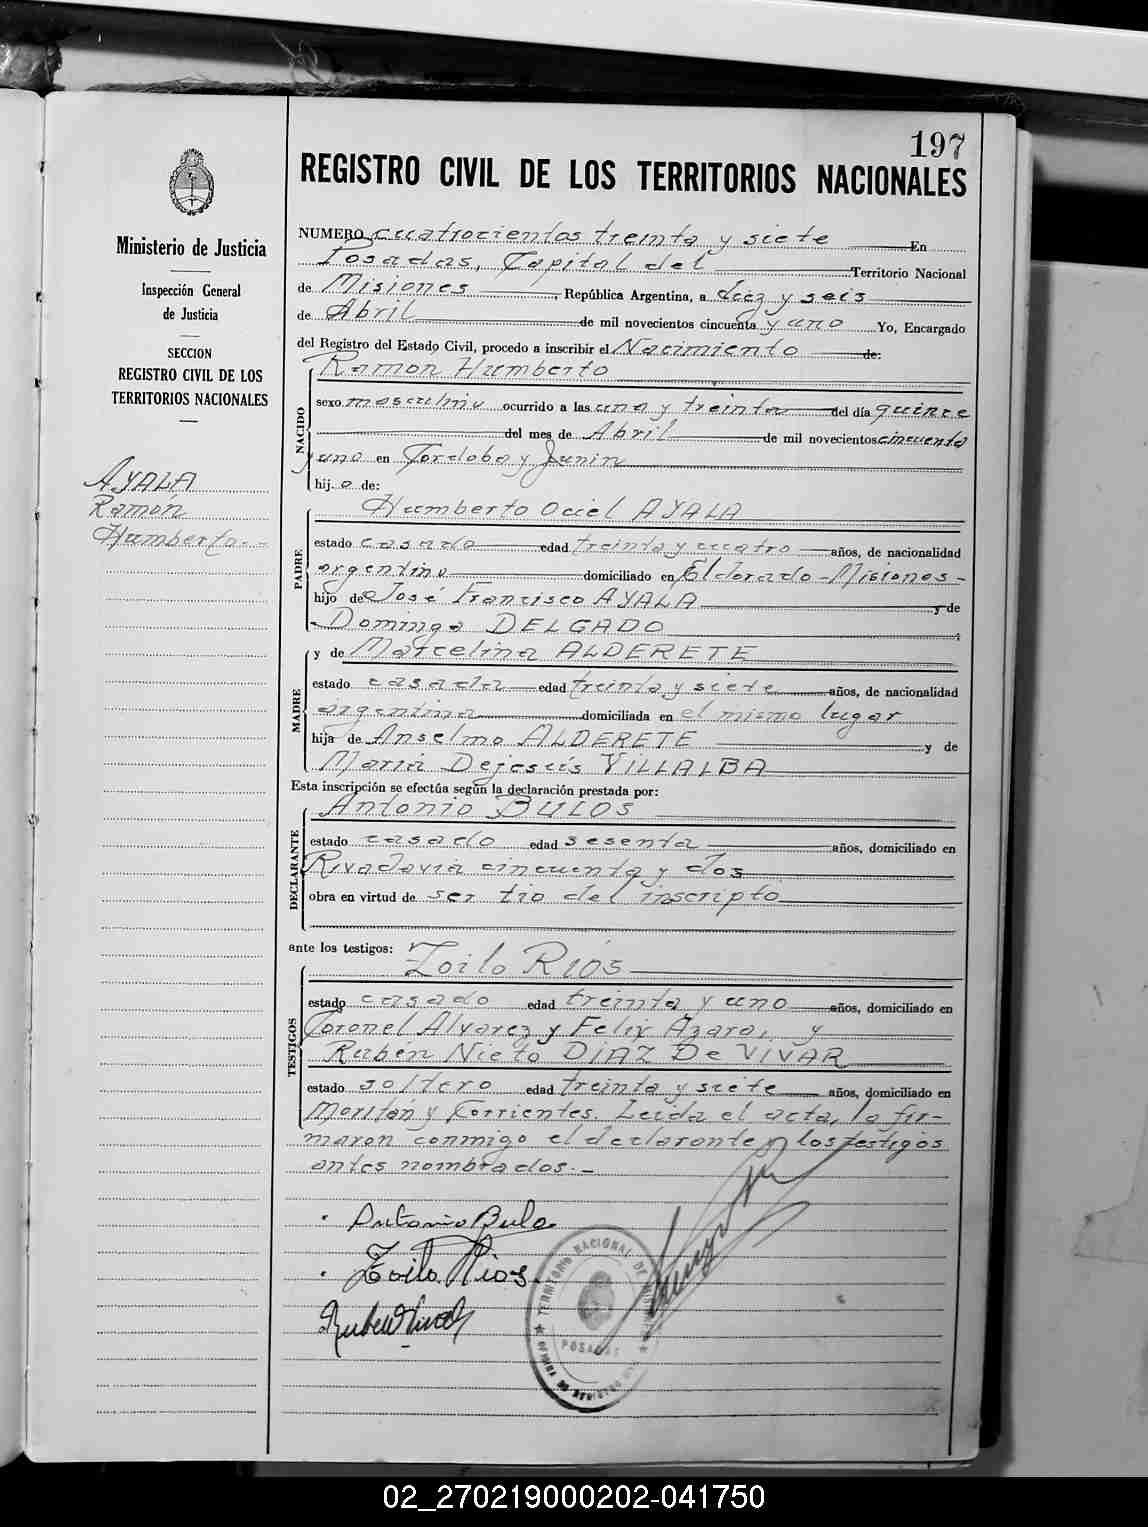 197
REGISTRO CIVIL DE LOS TERRITORIOS NACIONALES
Ministerio de Justicia
Inspección General
de Justicia
SECCION
REGISTRO CIVIL DE LOS
TERRITORIOS NACIONALES
AYALA
Ramón
Humberto.-
NUMERO cuatrocientos treinta y siete En
Posadas, Capital del Territorio Nacional
de Misiones, República Argentina, a diez y seis
de Abril de mil novecientos cincuenta y uno Yo, Encargado
del Registro del Estado Civil, procedo a inscribir el Nacimiento de:
NACIDO
Ramon Humberto
sexo masculino ocurrido a las una y treinta del día quince
del mes de Abril de mil novecientos cincuenta
y uno en Cordoba y Junin
hij o de:
PADRE
Humberto Ociel AYALA
estado casado edad treinta y cuatro años, de nacionalidad
argentino domiciliado en Eldorado - Misiones -
hijo de José Francisco AYALA y de
Dominga DELGADO ;
MADRE
y de Marcelina ALDERETE
estado casada edad treinta y siete años, de nacionalidad
argentina domiciliada en el mismo lugar
hija de Anselmo ALDERETE y de
María Dejesús VILLALBA
Esta inscripción se efectúa según la declaración prestada por:
DECLARANTE
Antonio BULOS
estado casado edad sesenta años, domiciliado en
Rivadavia cincuenta y dos
obra en virtud de ser tio del inscripto
ante los testigos:
TESTIGOS
Zoilo RIOS
estado casado edad treinta y uno años, domiciliado en
Coronel Alvarez y Felix Azara, y
Rubén Nieto DIAZ De VIVAR
estado soltero edad treinta y siete años, domiciliado en
y Corrientes. Leida el acta, la fir-
maron conmigo el declarante y los testigos
antes nombrados.-
Antonio Bulos
Zoilo Rios
TERRITORIO NACIONAL DE MISIONES
POSADAS
02_270219000202-041750